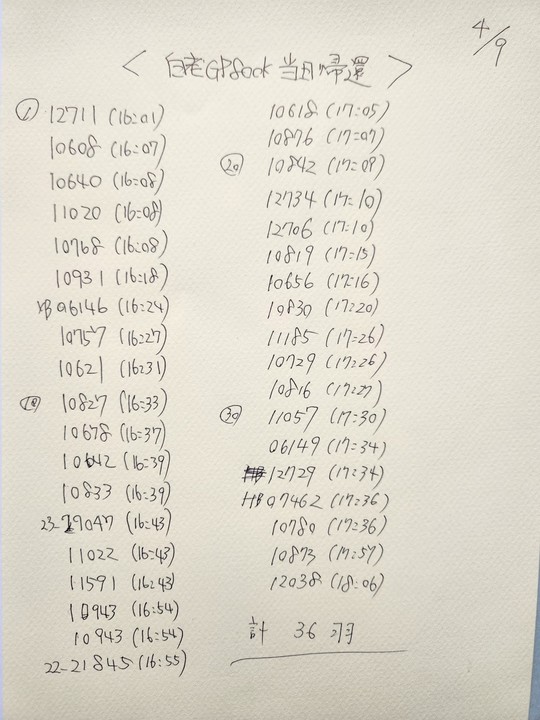 4/9
< 白老GP800K 当日帰還 >
① 12711 (16:01)
10608 (16:07)
10640 (16:08)
11020 (16:08)
10768 (16:08)
10931 (16:18)
06146 (16:24)
10757 (16:27)
10621 (16:31)
⑩ 10827 (16:33)
10678 (16:37)
10642 (16:39)
10833 (16:39)
23-29047 (16:43)
11022 (16:43)
11591 (16:43)
10943 (16:54)
10943 (16:54)
22-21845 (16:55)
10618 (17:05)
10876 (17:07)
⑳ 10842 (17:09)
12734 (17:10)
12706 (17:10)
10819 (17:15)
10656 (17:16)
10830 (17:20)
11185 (17:26)
10729 (17:26)
10816 (17:27)
㉚ 11057 (17:30)
06149 (17:34)
12729 (17:34)
HB 07462 (17:36)
10780 (17:36)
10873 (17:57)
12038 (18:06)
計 36 羽